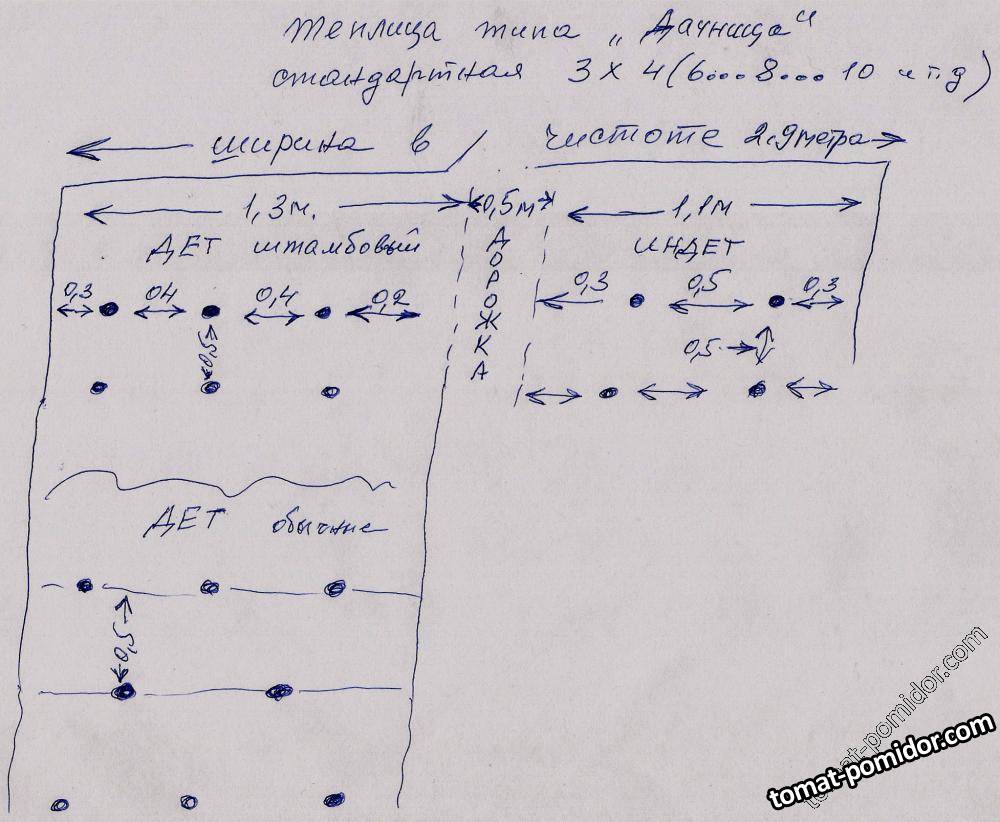 теплица типа „Дачница"
стандартная 3 х 4 (6...8...10 и т.д)
ширина в / чистоте 2.9 метра
1,3м. 0,5м 1,1м
ДЕТ штамбовый ДОРОЖКА ИНДЕТ
0,3 04 0,4 0,2 0,3 0,5 0,3
0,5 0,5
ДЕТ обычные
0,5
tomat-pomidor.com
tomat-pomidor.com